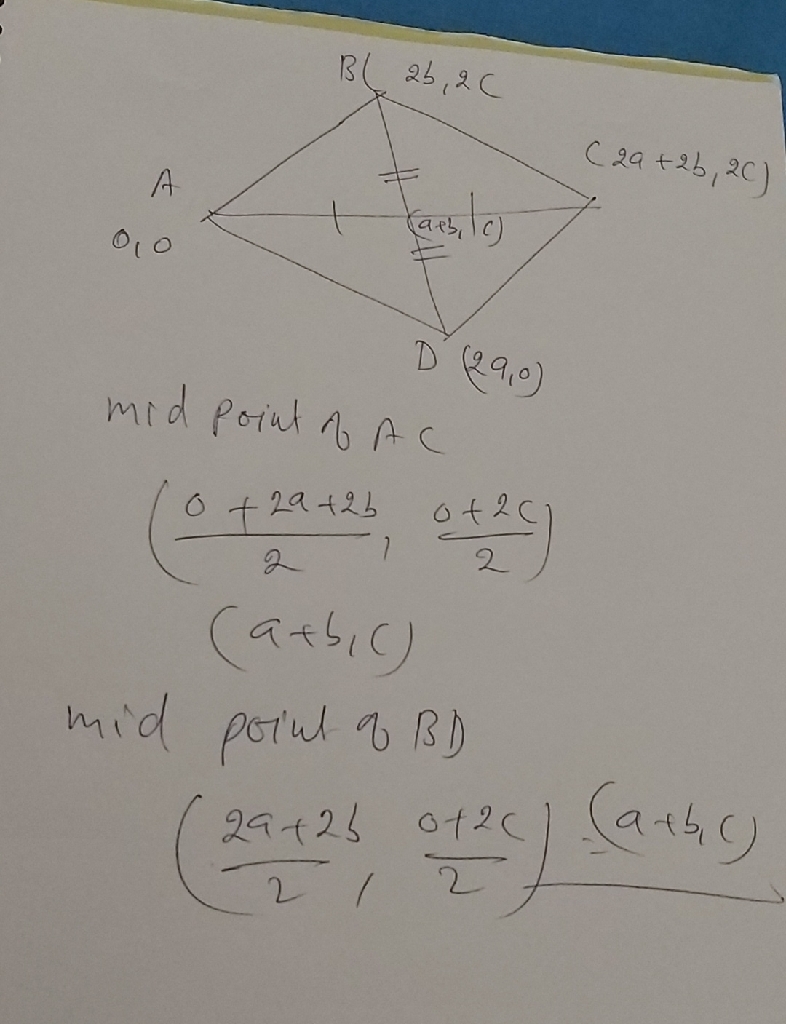 B( 2b, 2c
A
(2a+2b, 2c)
0,0
(a+b, c)
D (2a,0)
mid point of AC
(0+2a+2b/2, 0+2c/2)
(a+b, c)
mid point of BD
(2a+2b/2, 0+2c/2) = (a+b, c)